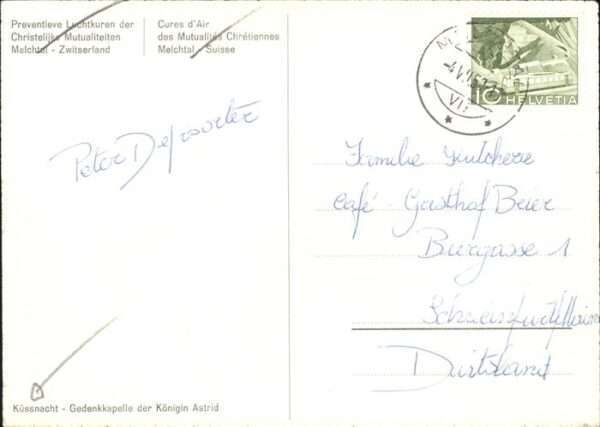 Preventieve Luchtkuren der
Christelijke Mutualiteiten
Melchtal - Zwitserland
Cures d'Air
des Mutualités Chrétiennes
Melchtal - Suisse
10 HELVETIA
VII
Peter Depoorter
Familie Kutchere
Café - Gasthof Beier
Burgasse 1
Schweinfurt/Main
Duitsland
Küssnacht - Gedenkkapelle der Königin Astrid